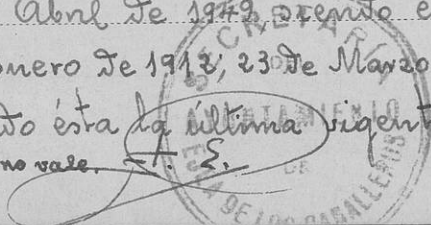 Abril de 1942 siendo e
nero de 1912, 23 de Marzo
do ésta la última vigent
no vale.
SECRETARÍA
AYUNTAMIENTO
DE LOS CABALLEROS